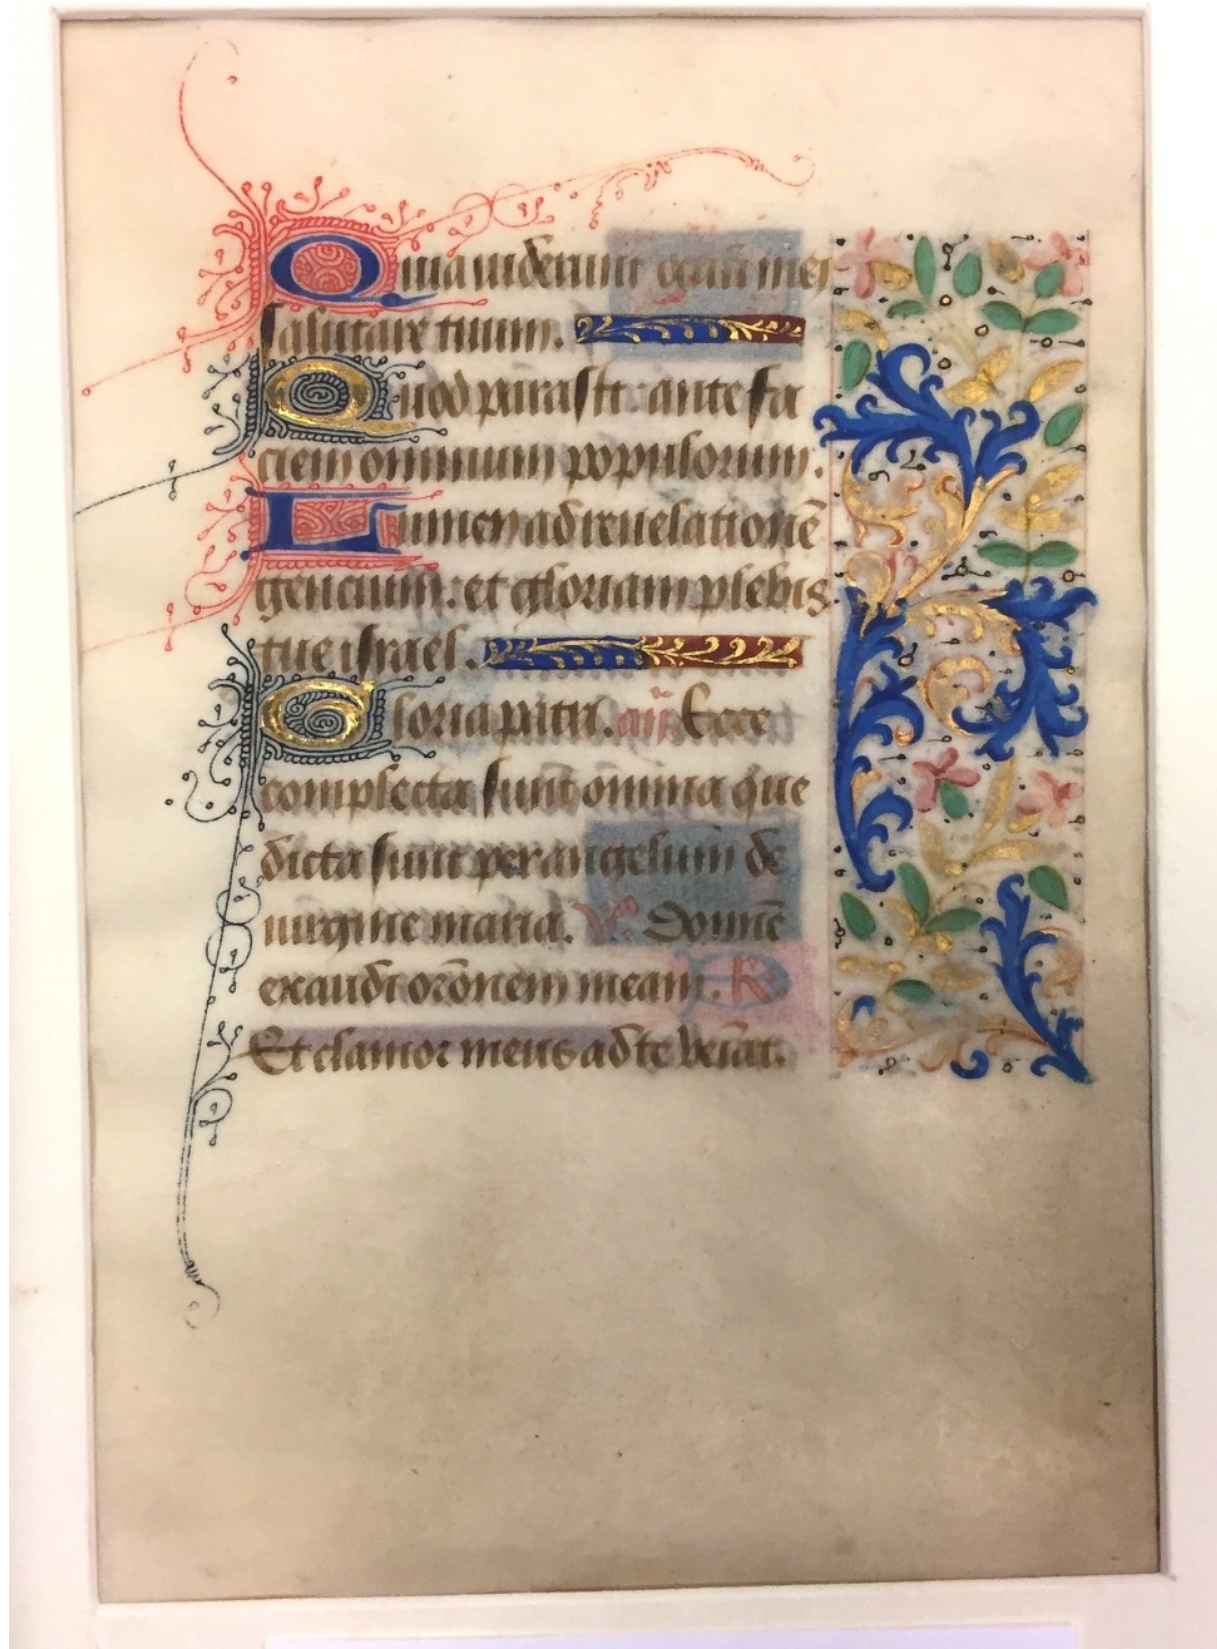 Quia uiderunt oculi mei
salutare tuum.
Quod parasti: ante fa
ciem omnium populorum.
Lumen ad reuelationē
gencium: et gloriam plebis
tue israel.
Gloria patri. añ Ecce
complecta sunt omnia que
dicta sunt per angelum de
uirgine maria. Domīe
exaudi orōnem meam. R
Et clamor meus ad te veīat.